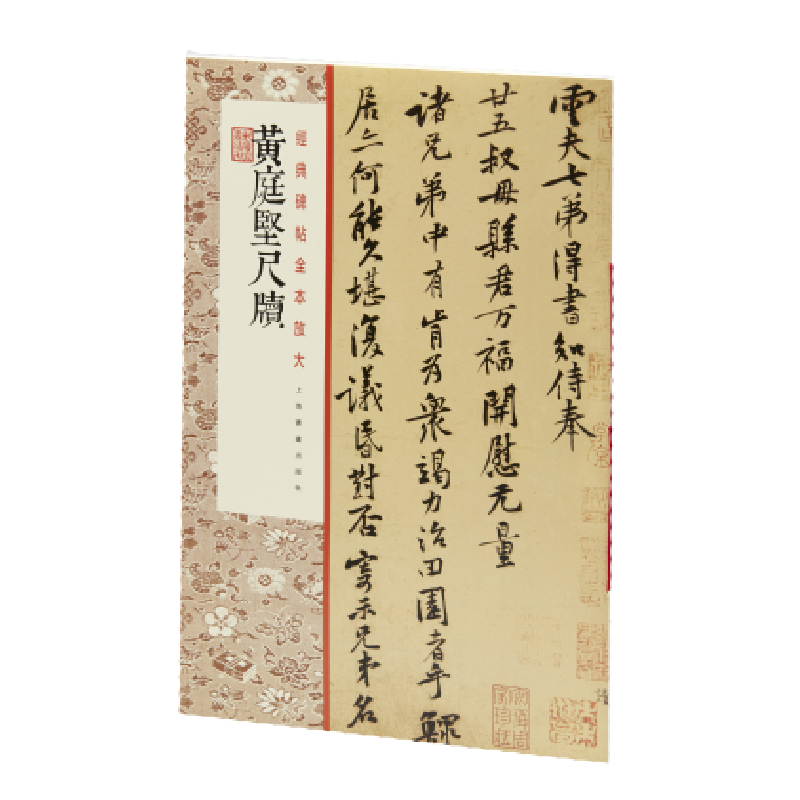 雲夫七弟得書知侍奉
廿五叔母縣君万福開慰无量
諸兄弟中有肯为衆竭力治田園者乎鰥
居亦何能久堪復議昏對否寄示兄弟名
經典碑帖全本放大
上海書畫出版社
黃庭堅尺牘